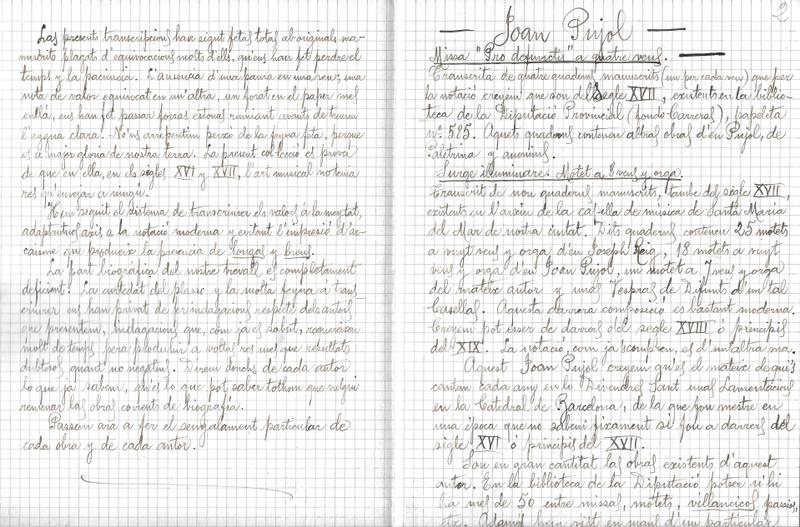 Las presents transcripcions han sigut fetas totas ab originals ma-
nuscrits plagats d'equivocacions molts d'ells, qui ens han fet perdre el
temps y la paciencia. L'ausencia d'una pausa en una veu; una
nota de valor equivocat en un'altra, un forat en el paper mes
enllá, ens han fet passar forsas estonas rumiant avants de treuren
l'aygua clara. No'ns arrepentim peró de la feyna feta, perque
es á major gloria de nostra terra. La present colecció es prova
de que en ella, en els segles XVI y XVII, l'art musical no tenia
res qu'envejar a ningú.
Hem seguit el sistema de transcriurer els valors á la meytat,
adaptantnos aixis a la notació moderna y evitant l'impresió d'ar-
caisme que produeix la presencia de longas y breus.
La part biográfica del nostre travall es completament
deficient. La curtedat del plasso y la molta feyna a trans-
criurer ens han privat de fer indagacions respecte dels autors
que presentem, indagacions que, com ja es sabut, requereixen
molt de temps, pera produhir a voltas res mes que resultats
dubtosos, quant no negatius. Direm donchs de cada autor
lo que ja sabem, qu'es lo que pot saber tothom que vulgui
remenar las obras corrents de biografia.
Passem ara a fer el senyalament particular de
cada obra y de cada autor.
2
Joan Pujol
Missa "Pro defunctis" a quatre veus.
Transcrita de quatre quaderns manuscrits (un per cada veu) que per
la notació creyem que son del segle XVII, existents en la biblio-
teca de la Diputació Provincial (fondo Carreras), papeleta
nº 585. Aquets quaderns contenen altras obras d'en Pujol, de
Palestrina y anonims.
Surge illuminare. Motet a 8 veus y orga.
Transcrit de nou quaderns manuscrits, també del segle XVII,
existents en l'arxiu de la capella de música de Santa Maria
del Mar de nostra ciutat. Dits quaderns contenen 25 motets
a vuyt veus y orga d'en Joseph Reig, 18 motets a vuyt
veus y orga d'en Joan Pujol, un motet a 7 veus y orga
del mateix autor y unas Vespras de Difunts d'un tal
Casellas. Aquesta darrera composició es bastant moderna.
Creyem pot esser de darrers del segle XVIII ó principis
del XIX. La notació, com ja's compren, es d'un'altra ma.
Aquest Joan Pujol creyem qu'es el mateix de qui's
cantan cada any en lo Divendres Sant unas Lamentacions
en la Catedral de Barcelona, de la que fou mestre en
una época que no sabem fixament si fou a darrers del
segle XVI ó principis del XVII.
Son en gran cantitat las obras existents d'aquest
autor. En la biblioteca de la Diputació potser n'hi
ha mes de 50 entre missas, motets, villancicos, passis,
etc. Adamés hem vist en man d'un particular